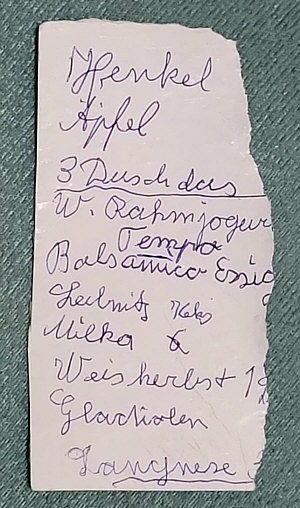 Henkel
Äpfel
3 Duschdas
W. Rahmjogur
Tempo
Balsamico Essig
Leibnitz Keks
Milka 6
Weisherbst 1
Gladiolen
Langnese